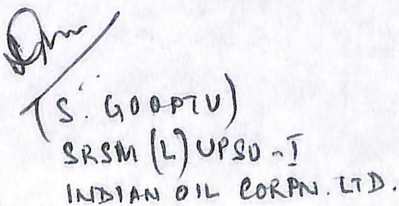 (S. GOOPTU)
SRSM (L) UPSO-I
INDIAN OIL CORPN. LTD.